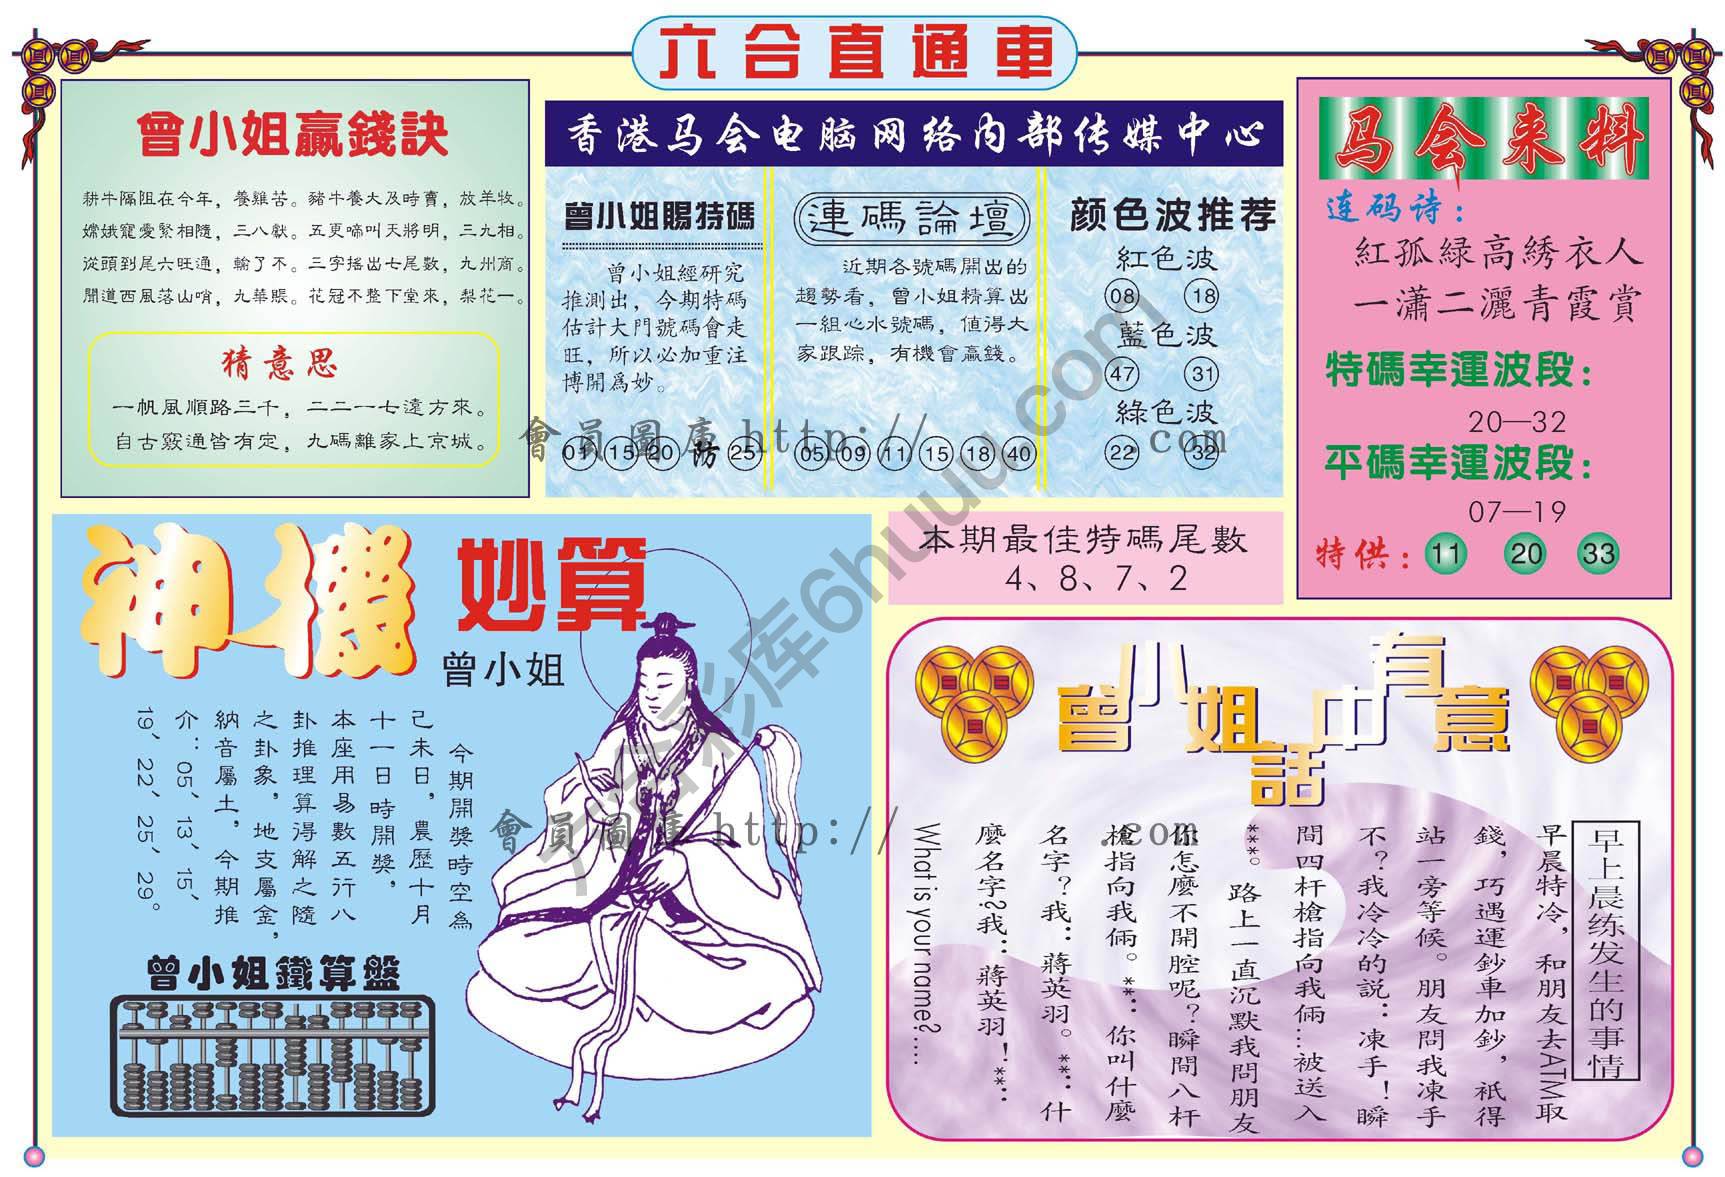 六合直通車
曾小姐贏錢訣
耕牛隔阻在今年，養雞苦。豬牛養大及時賣，放羊牧。
嫦娥寵愛緊相隨，三八獻。五更啼叫天將明，三九相。
從頭到尾六旺通，輸了不。三字搖出七尾數，九州商。
開道西風落山哨，九華賬。花冠不整下堂來，梨花一。
猜意思
一帆風順路三千，二二一七遠方來。
自古竅通皆有定，九碼離家上京城。
香港马会电脑网络内部传媒中心
曾小姐賜特碼
曾小姐經研究
推測出，今期特碼
估計大門號碼會走
旺，所以必加重注
博開爲妙。
01 15 20 防 25
連碼論壇
近期各號碼開出的
趨勢看，曾小姐精算出
一組心水號碼，值得大
家跟踪，有機會贏錢。
05 09 11 15 18 40
颜色波推荐
紅色波
08 18
藍色波
47 31
綠色波
22 32
马会来料
连码诗：
紅孤緑高綉衣人
一瀟二灑青霞賞
特碼幸運波段：
20—32
平碼幸運波段：
07—19
特供： 11 20 33
本期最佳特碼尾數
4、8、7、2
神機妙算
曾小姐
今期開獎時空為
己未日，農歷十月
十一日時開獎，
本座用易數五行八
卦推理算得解之隨
之卦象，地支屬金，
納音屬土，今期推
介：05、13、15、
19、22、25、29。
曾小姐鐵算盤
曾小姐話中有意
早上晨练发生的事情
早晨特冷，和朋友去ATM取
錢，巧遇運鈔車加鈔，祇得
站一旁等候。朋友問我凍手
不？我冷冷的説：凍手！瞬
間四杆槍指向我倆…被送入
***。路上一直沉默我問朋友
你怎麼不開腔呢？瞬間八杆
槍指向我倆。**：你叫什麼
名字？我：蔣英羽。**：什
麼名字?我：蔣英羽！**：
What is your name?……
會員圖庫 http://        .com
會員圖庫 http://        .com
六合彩库6huuu.com